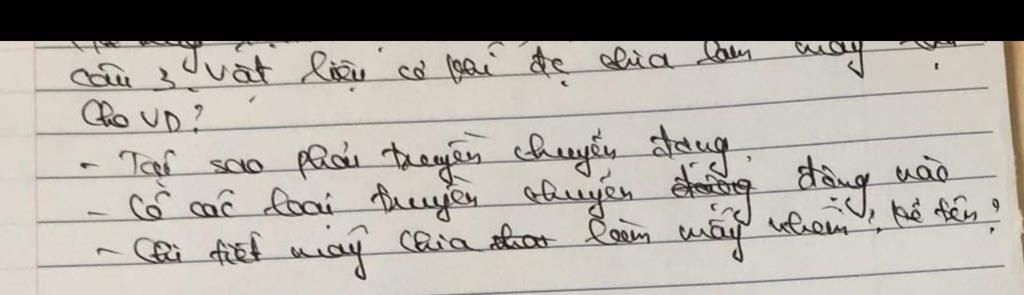 câu 3, vật liệu cơ khí đc chia làm mấy
Cho VD?
- Tại sao phải truyền chuyển động.
- Có các loại truyền chuyển động nào
- Chi tiết máy chia làm mấy nhóm, kể tên?